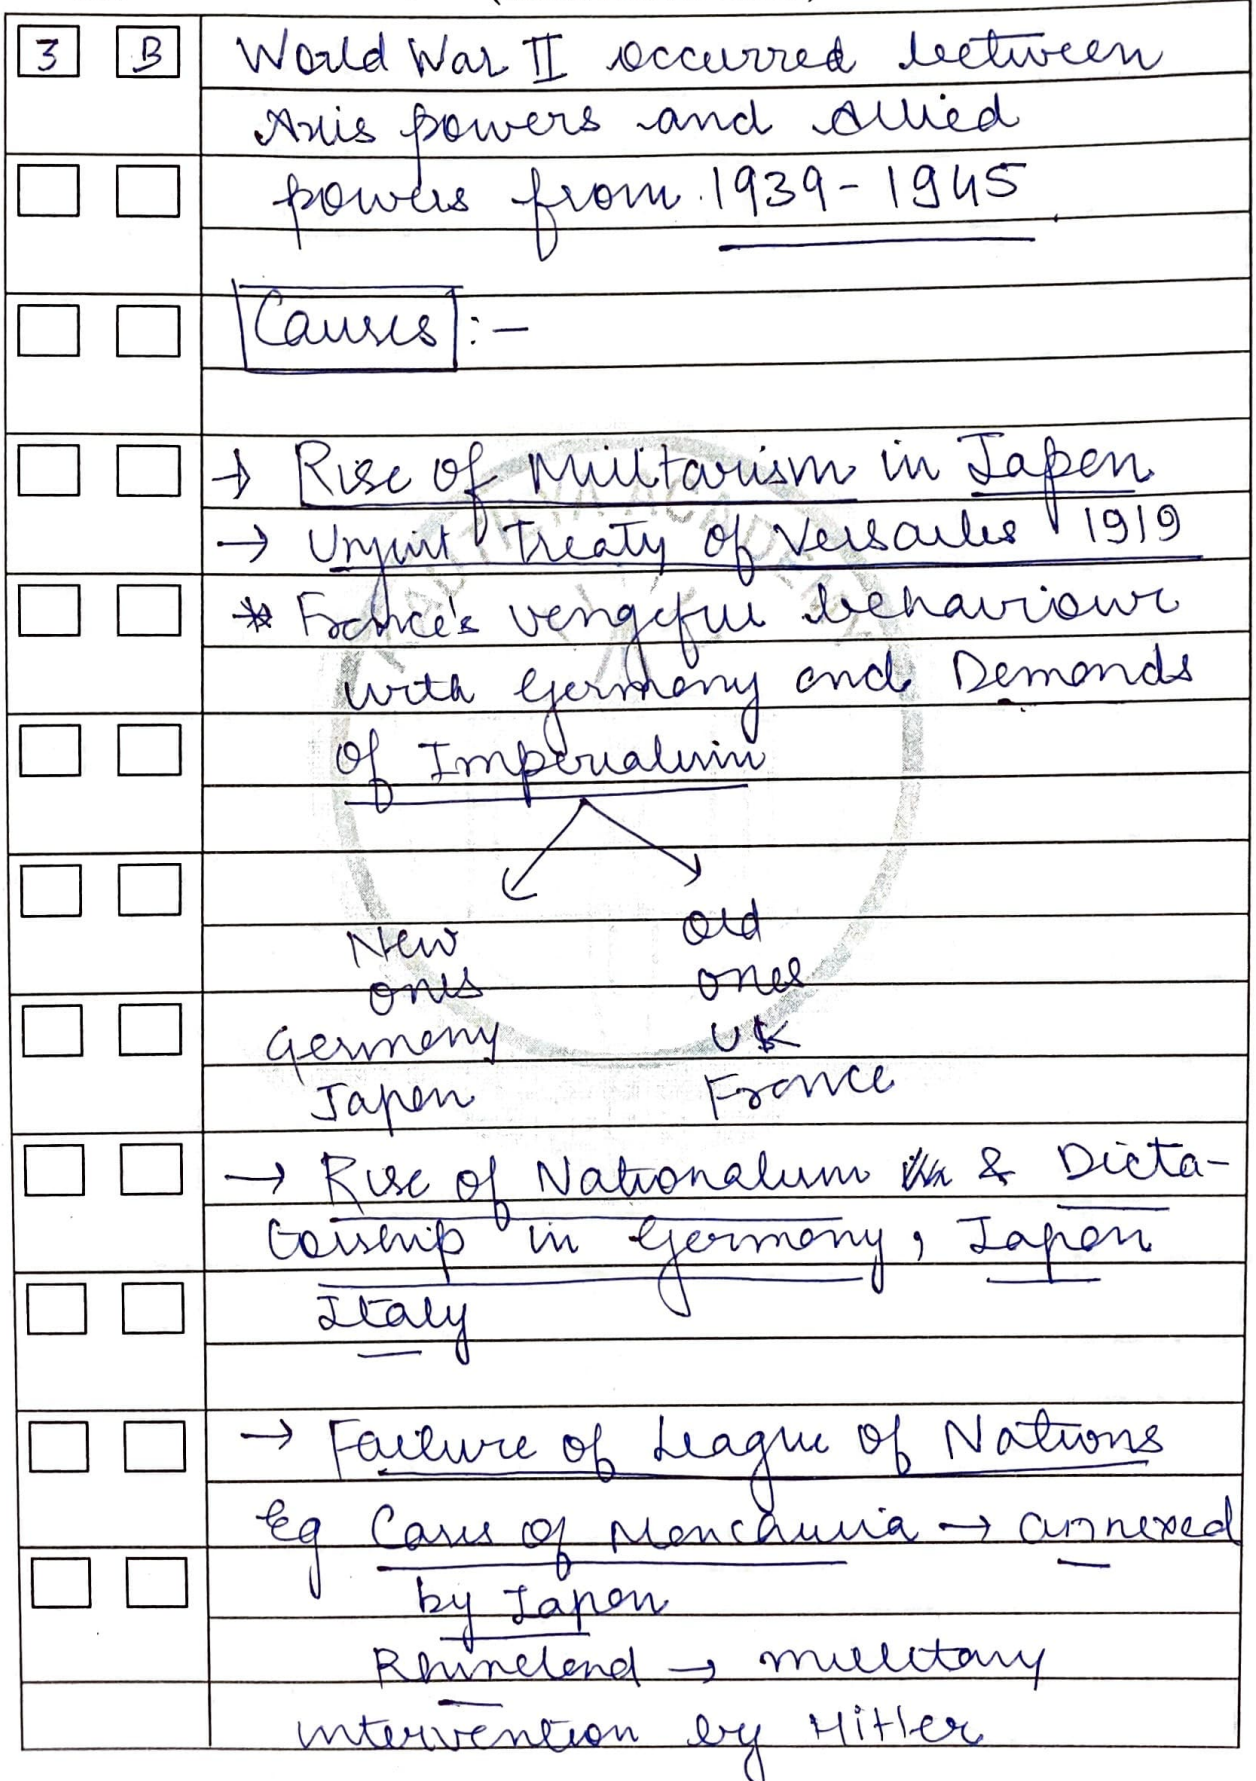 3 B World War II occurred between
Axis powers and Allied
powers from 1939-1945
Causes :-
→ Rise of Militarism in Japan
→ Unjust Treaty of Versailes 1919
* France's vengeful behaviour
with Germany and Demands
of Imperialism
New Old
ones ones
Germany UK
Japan France
→ Rise of Nationalism & Dicta-
torship in Germany, Japan
Italy
→ Failure of League of Nations
Eg Cases of Manchuria → annexed
by Japan
Rhineland → millitary
intervention by Hitler